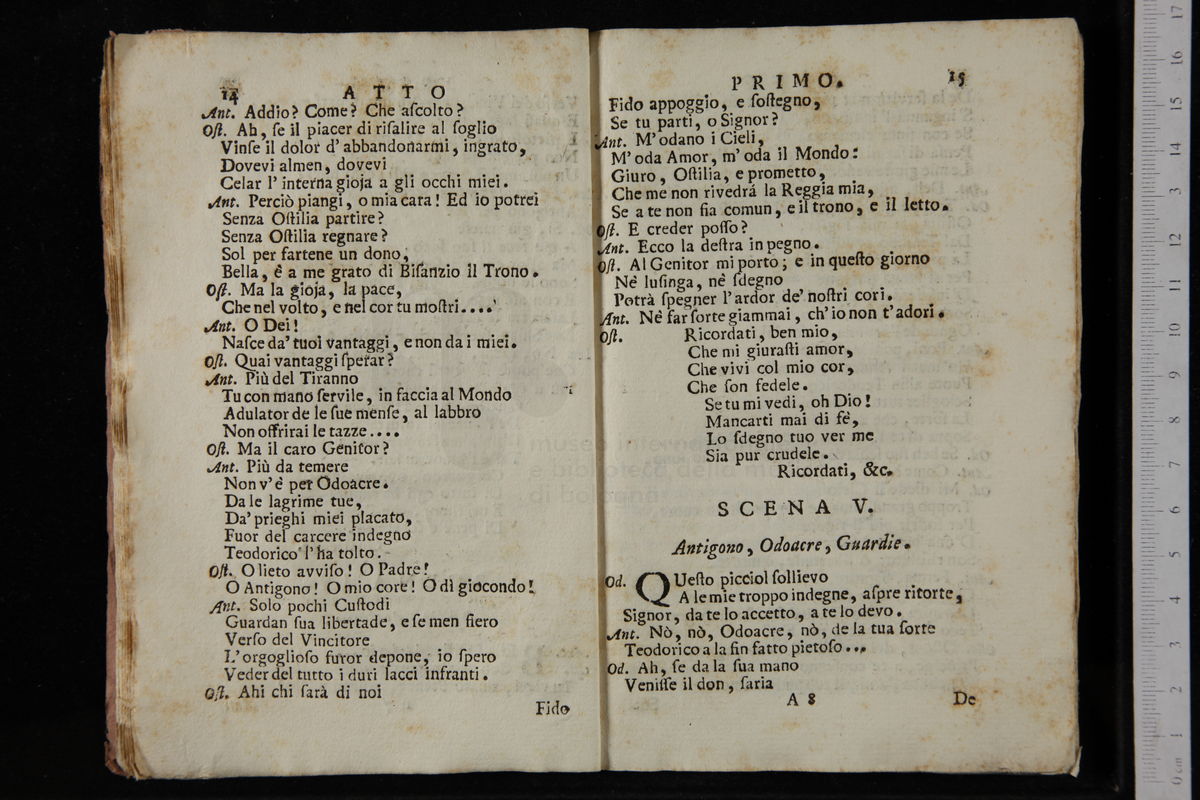 14 ATTO
Ant. Addio? Come? Che aſcolto?
Oſt. Ah, ſe il piacer di riſalire al ſoglio
Vinſe il dolor d'abbandonarmi, ingrato,
Dovevi almen, dovevi
Celar l'interna gioja a gli occhi miei.
Ant. Perciò piangi, o mia cara! Ed io potrei
Senza Oſtilia partire?
Senza Oſtilia regnare?
Sol per fartene un dono,
Bella, è a me grato di Biſanzio il Trono.
Oſt. Ma la gioja, la pace,
Che nel volto, e nel cor tu moſtri....
Ant. O Dei!
Naſce da' tuoi vantaggi, e non da i miei.
Oſt. Quai vantaggi ſperar?
Ant. Più del Tiranno
Tu con mano ſervile, in faccia al Mondo
Adulator de le ſue menſe, al labbro
Non offrirai le tazze....
Oſt. Ma il caro Genitor?
Ant. Più da temere
Non v'è per Odoacre.
Da le lagrime tue,
Da' prieghi miei placato,
Fuor del carcere indegno
Teodorico l'ha tolto.
Oſt. O lieto avviſo! O Padre!
O Antigono! O mio core! O dì giocondo!
Ant. Solo pochi Cuſtodi
Guardan ſua libertade, e ſe men fiero
Verſo del Vincitore
L'orgoglioſo furor depone, io ſpero
Veder del tutto i duri lacci infranti.
Oſt. Ahi chi ſarà di noi
Fido
PRIMO. 15
Fido appoggio, e ſoſtegno,
Se tu parti, o Signor?
Ant. M'odano i Cieli,
M'oda Amor, m'oda il Mondo:
Giuro, Oſtilia, e prometto,
Che me non rivedrá la Reggia mia,
Se a te non fia comun, e il trono, e il letto.
Oſt. E creder poſſo?
Ant. Ecco la deſtra in pegno.
Oſt. Al Genitor mi porto; e in queſto giorno
Nè luſinga, nè ſdegno
Potrà ſpegner l'ardor de' noſtri cori.
Ant. Nè far ſorte giammai, ch'io non t'adori.
Oſt. Ricordati, ben mio,
Che mi giuraſti amor,
Che vivi col mio cor,
Che ſon fedele.
Se tu mi vedi, oh Dio!
Mancarti mai di fè,
Lo ſdegno tuo ver me
Sia pur crudele.
Ricordati, &c.
SCENA V.
Antigono, Odoacre, Guardie.
Od. QUeſto picciol ſollievo
A le mie troppo indegne, aſpre ritorte,
Signor, da te lo accetto, a te lo devo.
Ant. Nò, nò, Odoacre, nò, de la tua ſorte
Teodorico a la fin fatto pietoſo...
Od. Ah, ſe da la ſua mano
Veniſſe il don, ſaria
A 8 De